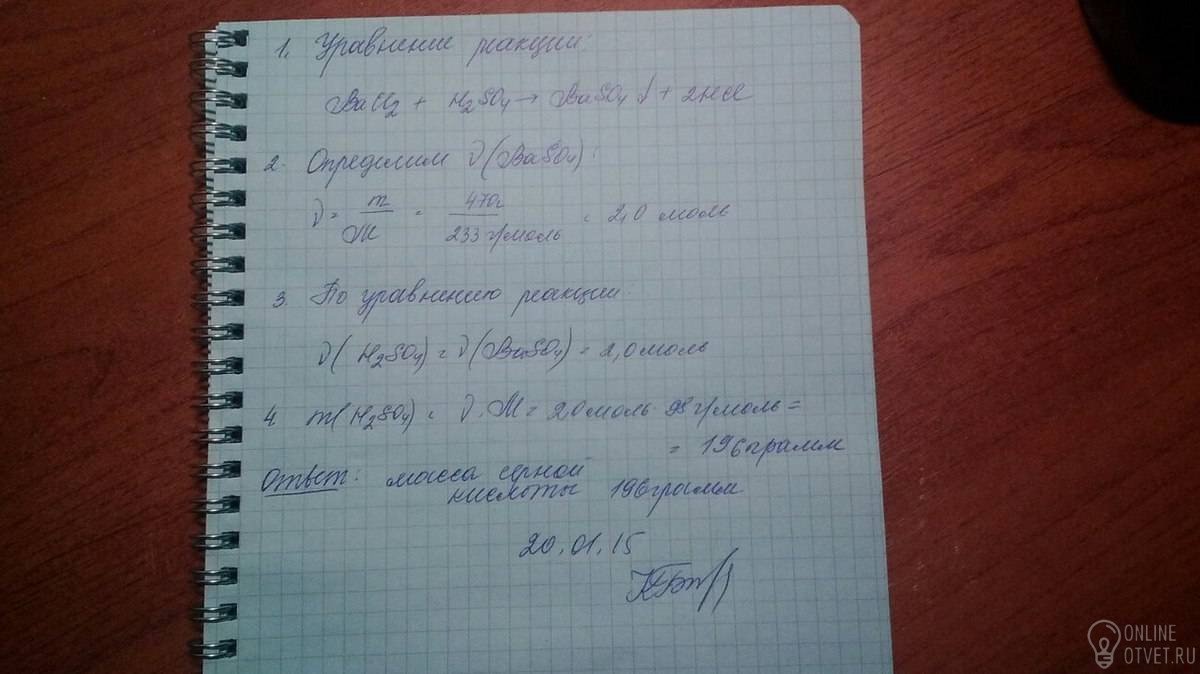 1. Уравнение реакции:
BaCl2 + H2SO4 → BaSO4 ↓ + 2HCl
2. Определим ν(BaSO4):
ν = m/M = 470г/233 г/моль = 2,0 моль
3. По уравнению реакции:
ν(H2SO4) = ν(BaSO4) = 2,0 моль
4 m(H2SO4) = ν·M = 2,0 моль 98 г/моль =
= 196 грамм
Ответ: масса серной
кислоты 196 грамм
20.01.15
ONLINE
OTVET.RU